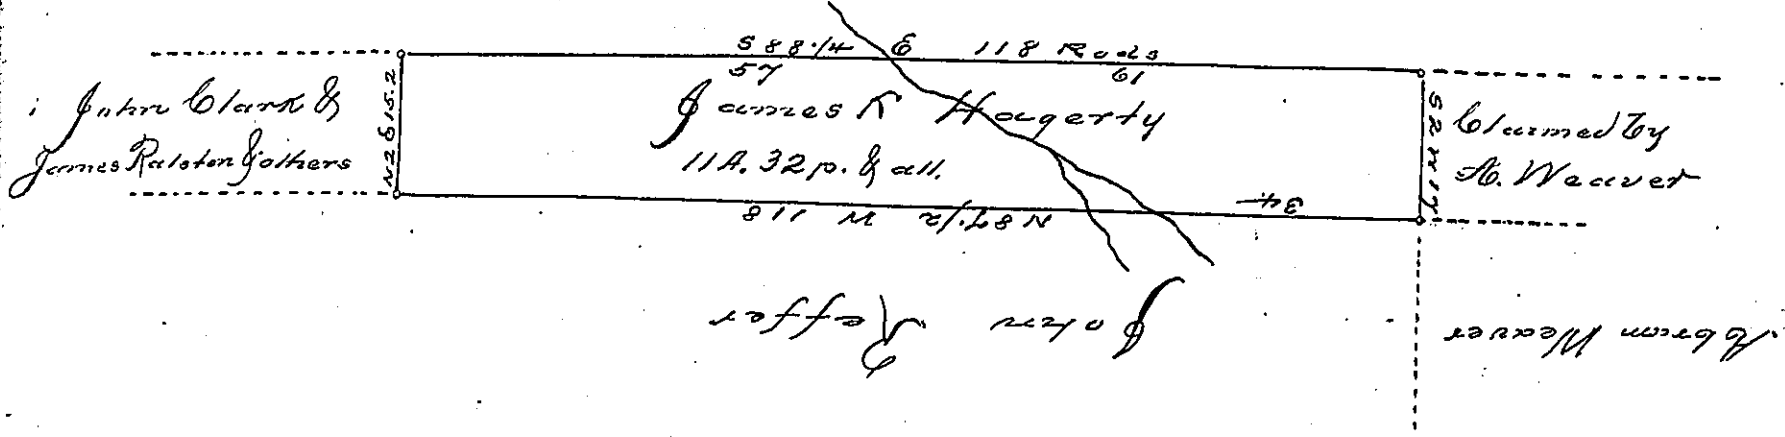 S 88 1/4 E 118 Rods
57 61
John Clark &
James Ralston & others
N 2 E 15.2
James K Hagerty
11 A. 32 p. & all.
S 2 W 17
Claimed by
A. Weaver
34
N 87 1/2 W 118
John Keffer
Abram Weaver